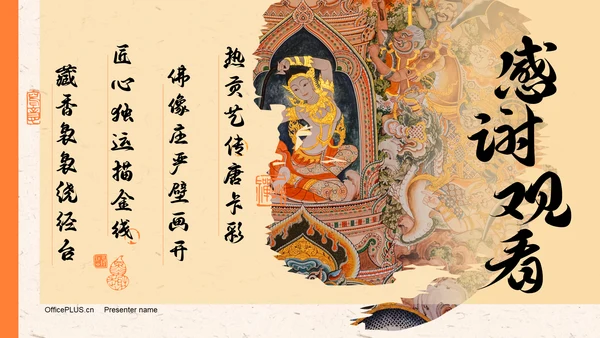 感谢观看
热贡艺传唐卡彩
佛像庄严壁画开
匠心独运描金线
藏香袅袅绕经台
OfficePLUS.cn Presenter name